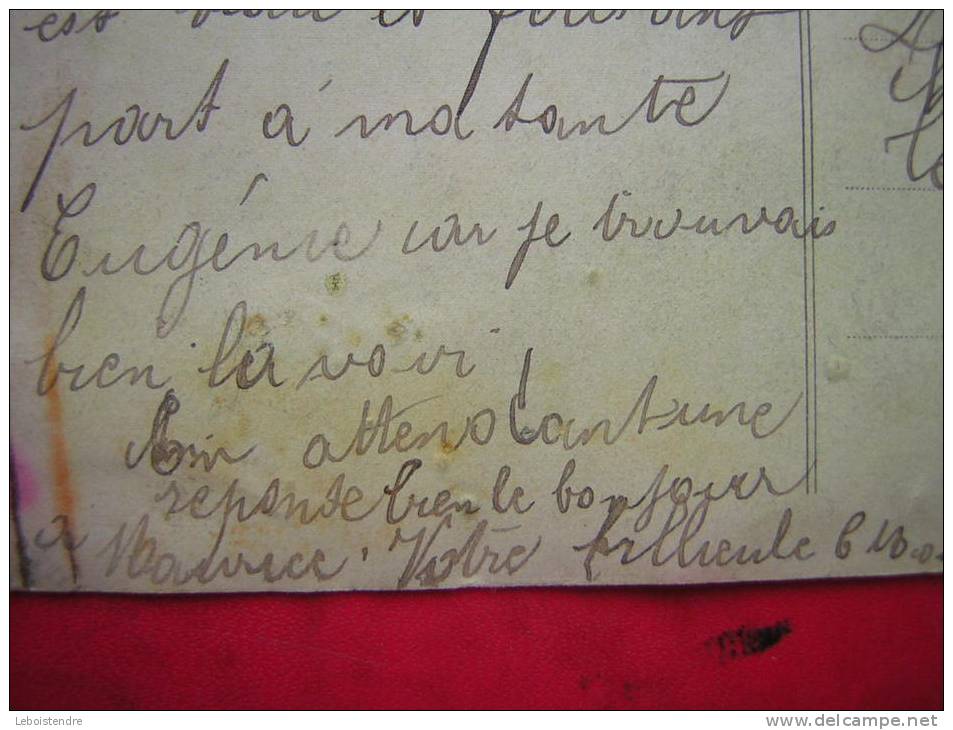 est
part à ma tante
Eugénie car je trouvais
bien la voir
En attendant une
reponse bien le bonjour
à Maurice. Votre filleule
Leboistendre
www.delcampe.net